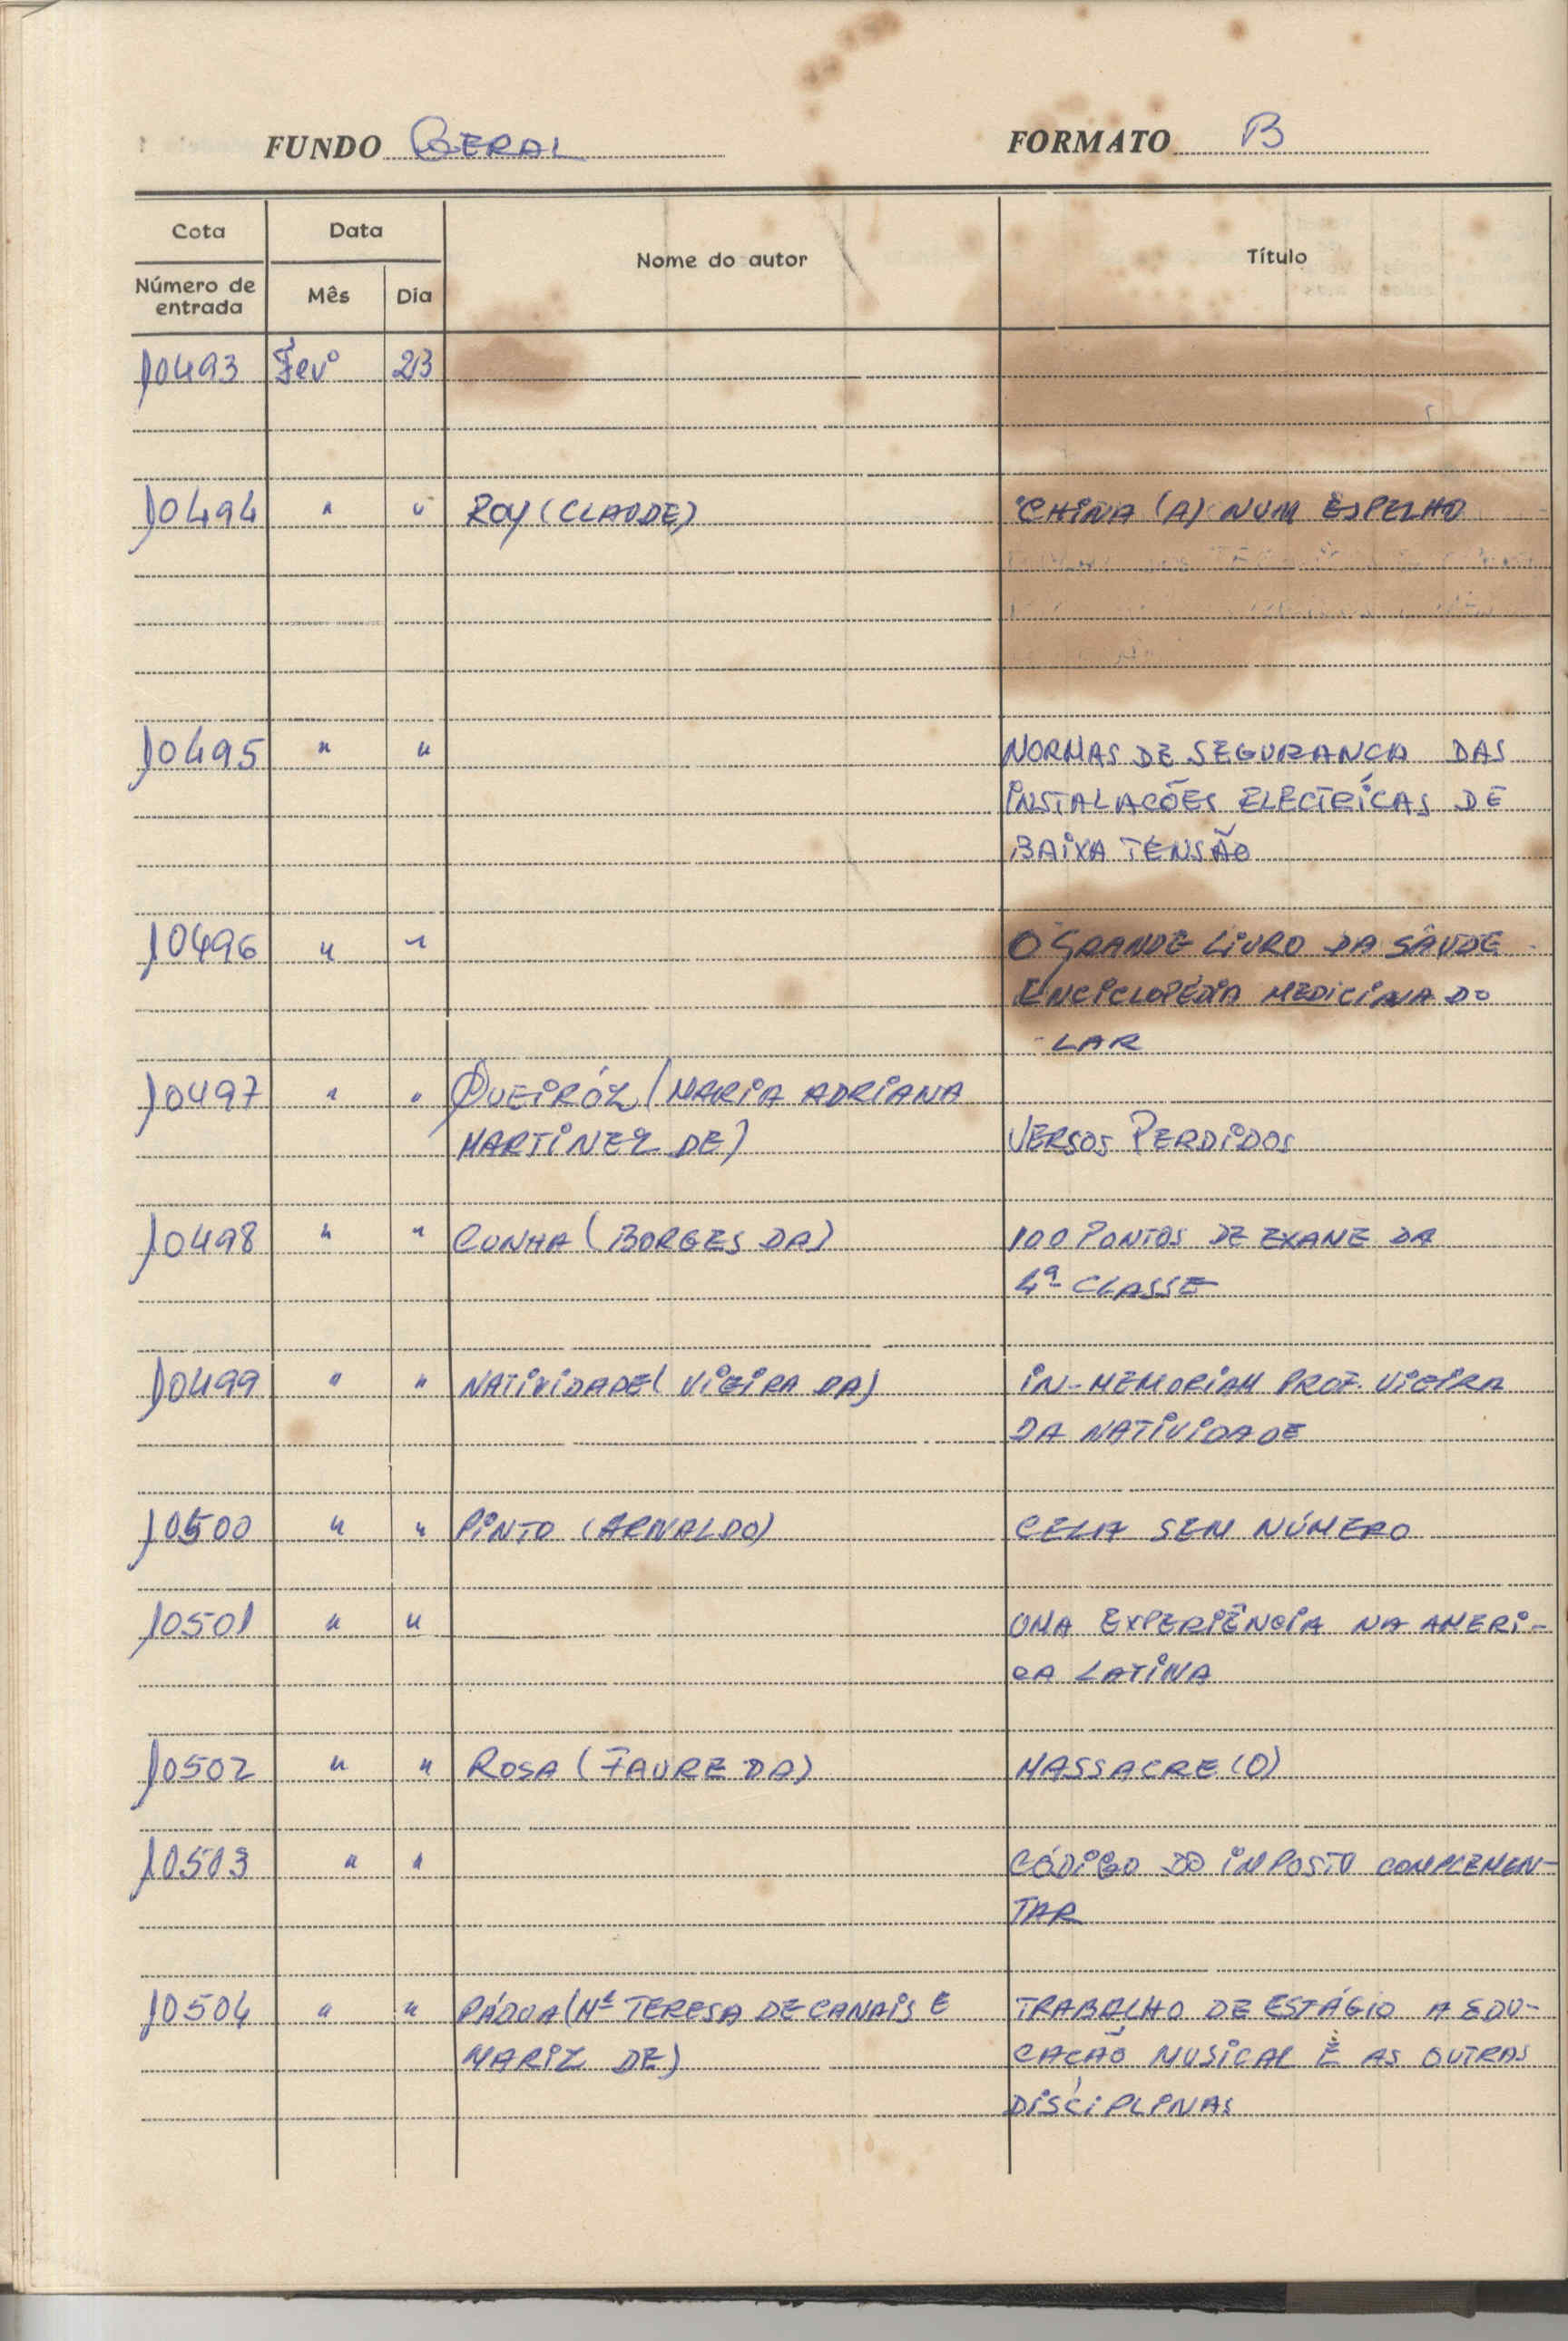 FUNDO GERAL FORMATO B
Cota Data Nome do autor Título
Número de entrada Mês Dia
10493 Fevº 23
10494 " " ROY (CLAUDE) CHINA (A) NUM ESPELHO
10495 " " NORMAS DE SEGURANÇA DAS
INSTALAÇÕES ELECTRICAS DE
BAIXA TENSÃO
10496 " " O GRANDE LIVRO DA SAUDE
ENCICLOPÉDIA MEDICINA DO
LAR
10497 " " QUEIRÓZ (MARIA ADRIANA
MARTINEZ DE) VERSOS PERDIDOS
10498 " " CUNHA (BORGES DA) 100 PONTOS DE EXAME DA
4ª CLASSE
10499 " " NATIVIDADE (VIEIRA DA) IN-MEMORIAM PROF. VIEIRA
DA NATIVIDADE
10500 " " PINTO (ARNALDO) CELA SEM NÚMERO
10501 " " UMA EXPERIÊNCIA NA AMERI-
CA LATINA
10502 " " ROSA (FAURE DA) MASSACRE (O)
10503 " " CÓDIGO DO IMPOSTO COMPLEMEN-
TAR
10504 " " PÁDUA (Mª TERESA DE CANAIS E TRABALHO DE ESTÁGIO A EDU-
MARIZ DE) CAÇÃO MUSICAL E AS OUTRAS
DISCIPLINAS